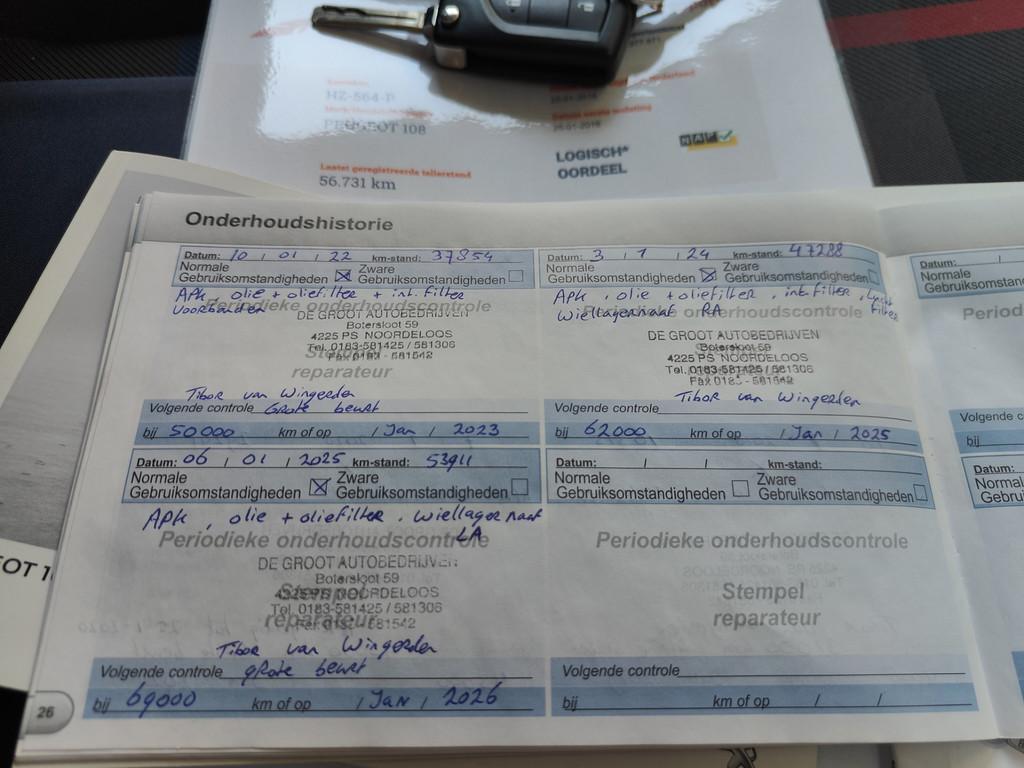 HZ-564-P
PEUGEOT 108
Laatst geregistreerde tellerstand
56.731 km
LOGISCH*
OORDEEL
NAP
Onderhoudshistorie
Datum: 10 / 01 / 22 km-stand: 37854
Normale Gebruiksomstandigheden ☒ Zware Gebruiksomstandigheden ☐
APK, olie + oliefilter + int. filter
Voorbanden
Periodieke onderhoudscontrole
DE GROOT AUTOBEDRIJVEN
Botersloot 59
4225 PS NOORDELOOS
Tel. 0183-581425 / 581306
Fax 0183 - 581542
Stempel
reparateur
Tibor van Wingerden
Volgende controle Grote beurt
bij 50000 km of op / Jan / 2023
Datum: 3 / 1 / 24 km-stand: 47288
Normale Gebruiksomstandigheden ☒ Zware Gebruiksomstandigheden ☐
APK, olie + oliefilter, int. filter, lucht filter
Wiellagernaaf RA
Periodieke onderhoudscontrole
DE GROOT AUTOBEDRIJVEN
Botersloot 59
4225 PS NOORDELOOS
Tel. 0183-581425 / 581306
Fax 0183 - 581542
reparateur
Tibor van Wingerden
Volgende controle
bij 62000 km of op / Jan / 2025
Datum: 06 / 01 / 2025 km-stand: 53911
Normale Gebruiksomstandigheden ☒ Zware Gebruiksomstandigheden ☐
APK, olie + oliefilter, wiellagernaaf
LA
Periodieke onderhoudscontrole
DE GROOT AUTOBEDRIJVEN
Botersloot 59
4225 PS NOORDELOOS
Tel. 0183-581425 / 581306
Fax 0183 - 581542
Stempel
reparateur
Tibor van Wingerden
Volgende controle grote beurt
bij 69000 km of op / Jan / 2026
Datum: / / km-stand:
Normale Gebruiksomstandigheden ☐ Zware Gebruiksomstandigheden ☐
Periodieke onderhoudscontrole
Stempel
reparateur
Volgende controle
bij km of op / / /
Datum: /
Normale
Gebruiks
Period
Volgende c
bij
Datum:
Normal
Gebrui
Per
Volg
bij
OT 1
26